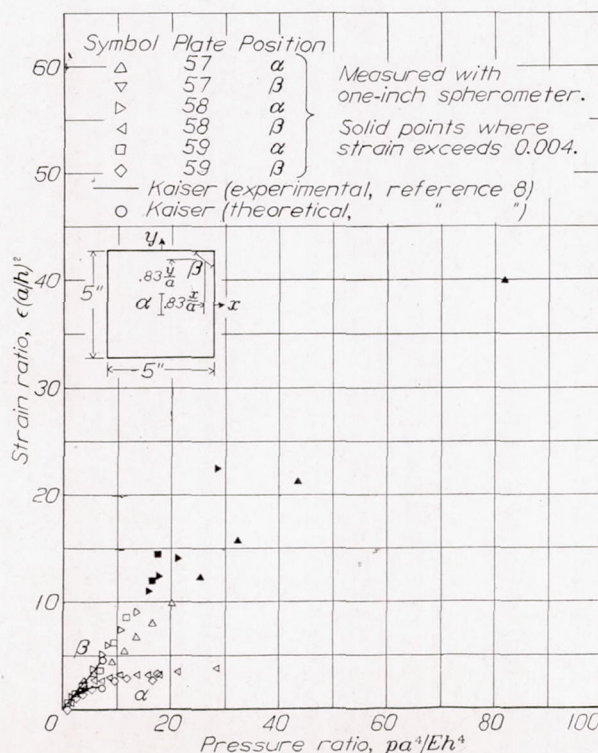 Symbol Plate Position
△ 57 α
▽ 57 β
▷ 58 α
◁ 58 β
□ 59 α
◇ 59 β
Measured with
one-inch spherometer.
Solid points where
strain exceeds 0.004.
— Kaiser (experimental, reference 8)
○ Kaiser (theoretical, " ")
y
.83 y/a
β
5"
α
.83 x/a
x
5"
Strain ratio, ε(a/h)²
60
50
40
30
20
10
0
β
α
0 20 40 60 80 100
Pressure ratio, pa⁴/Eh⁴